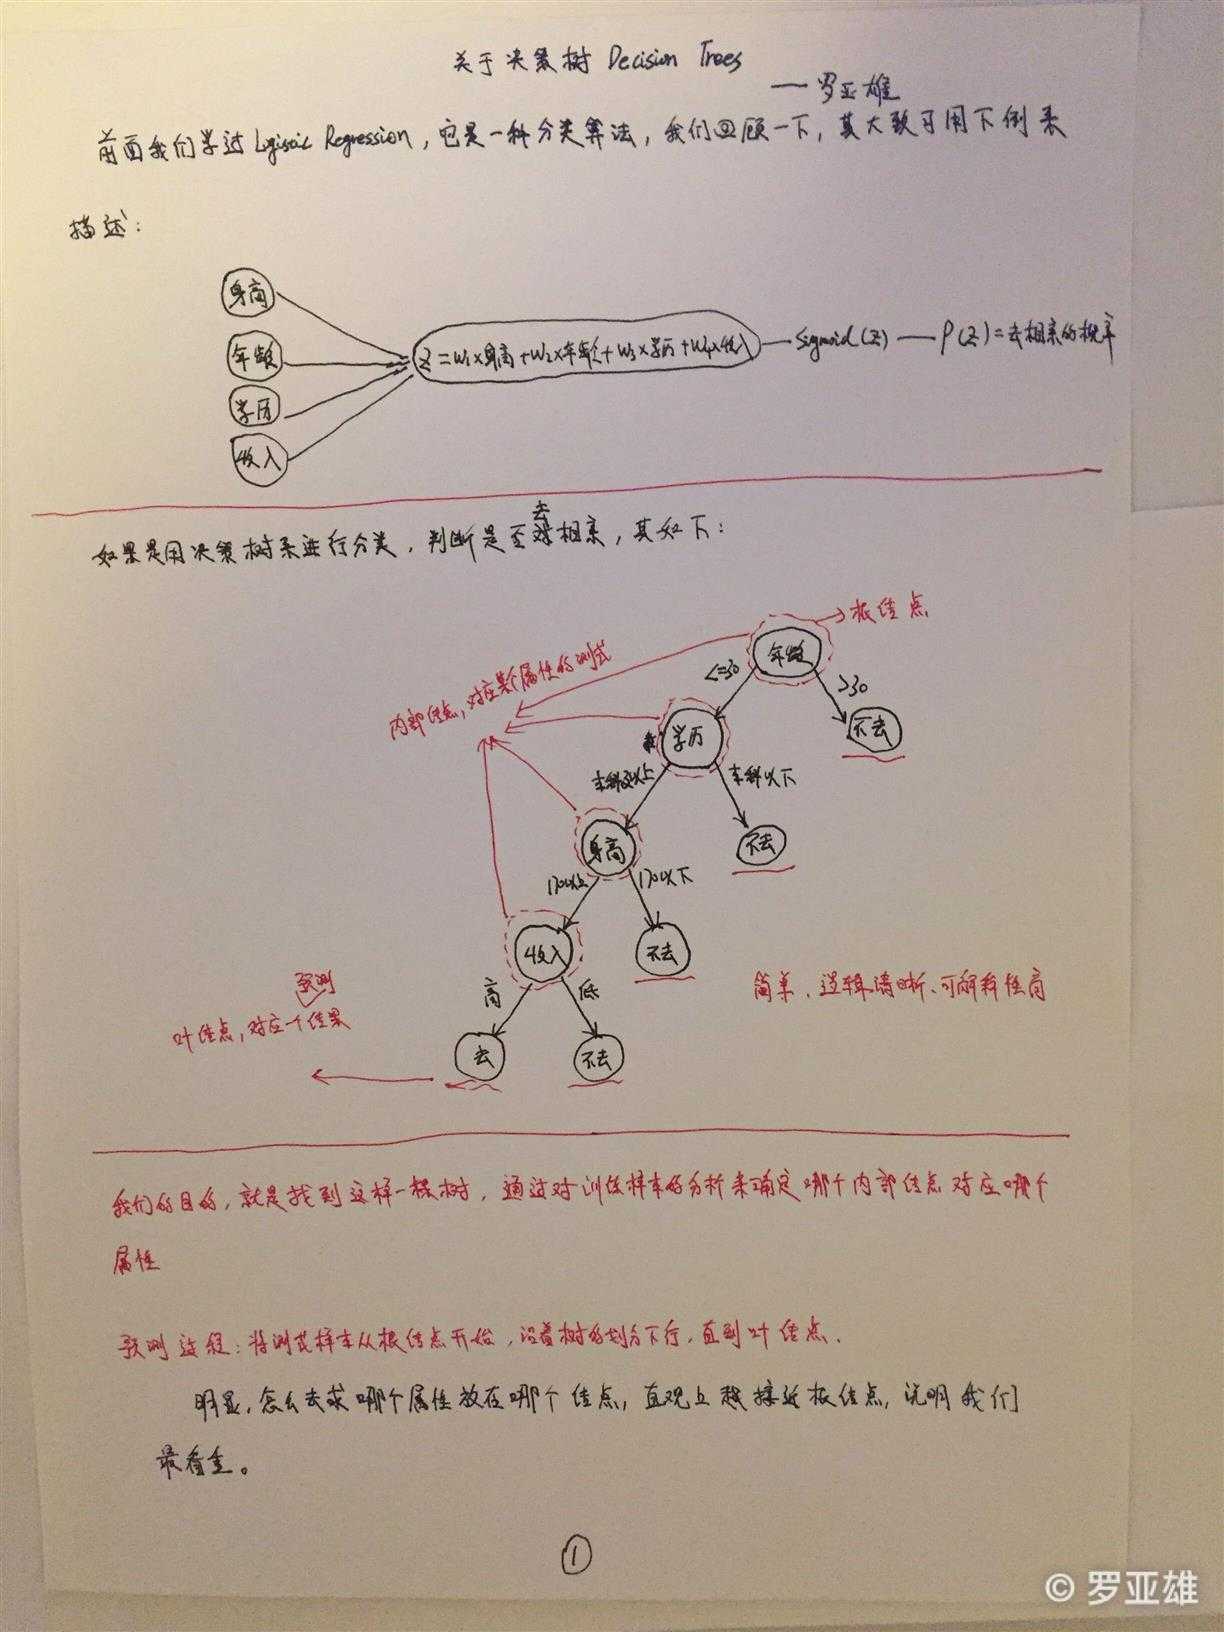 关于决策树 Decision Trees
——罗亚雄
前面我们学过 Logistic Regression，它是一种分类算法，我们回顾一下，其大致可用下例来
描述：
身高
年龄
学历
收入
Z=W₁×身高+W₂×年龄+W₃×学历+W₄×收入
Sigmoid(Z)
P(Z)=去相亲的概率
如果是用决策树来进行分类，判断是否去相亲，其如下：
根结点
年龄
<=30
>30
内部结点，对应某个属性的测试
学历
不去
本科及以上
本科以下
身高
不去
170以上
170以下
收入
不去
高
低
简单、逻辑清晰、可解释性高
预测
叶结点，对应一个结果
去
不去
我们的目的，就是找到这样一棵树，通过对训练样本的分析来确定哪个内部结点对应哪个
属性
预测过程：将测试样本从根结点开始，沿着树的划分下行，直到叶结点.
明显，怎么去求哪个属性放在哪个结点，直观上越接近根结点，说明我们
最看重。
①
© 罗亚雄